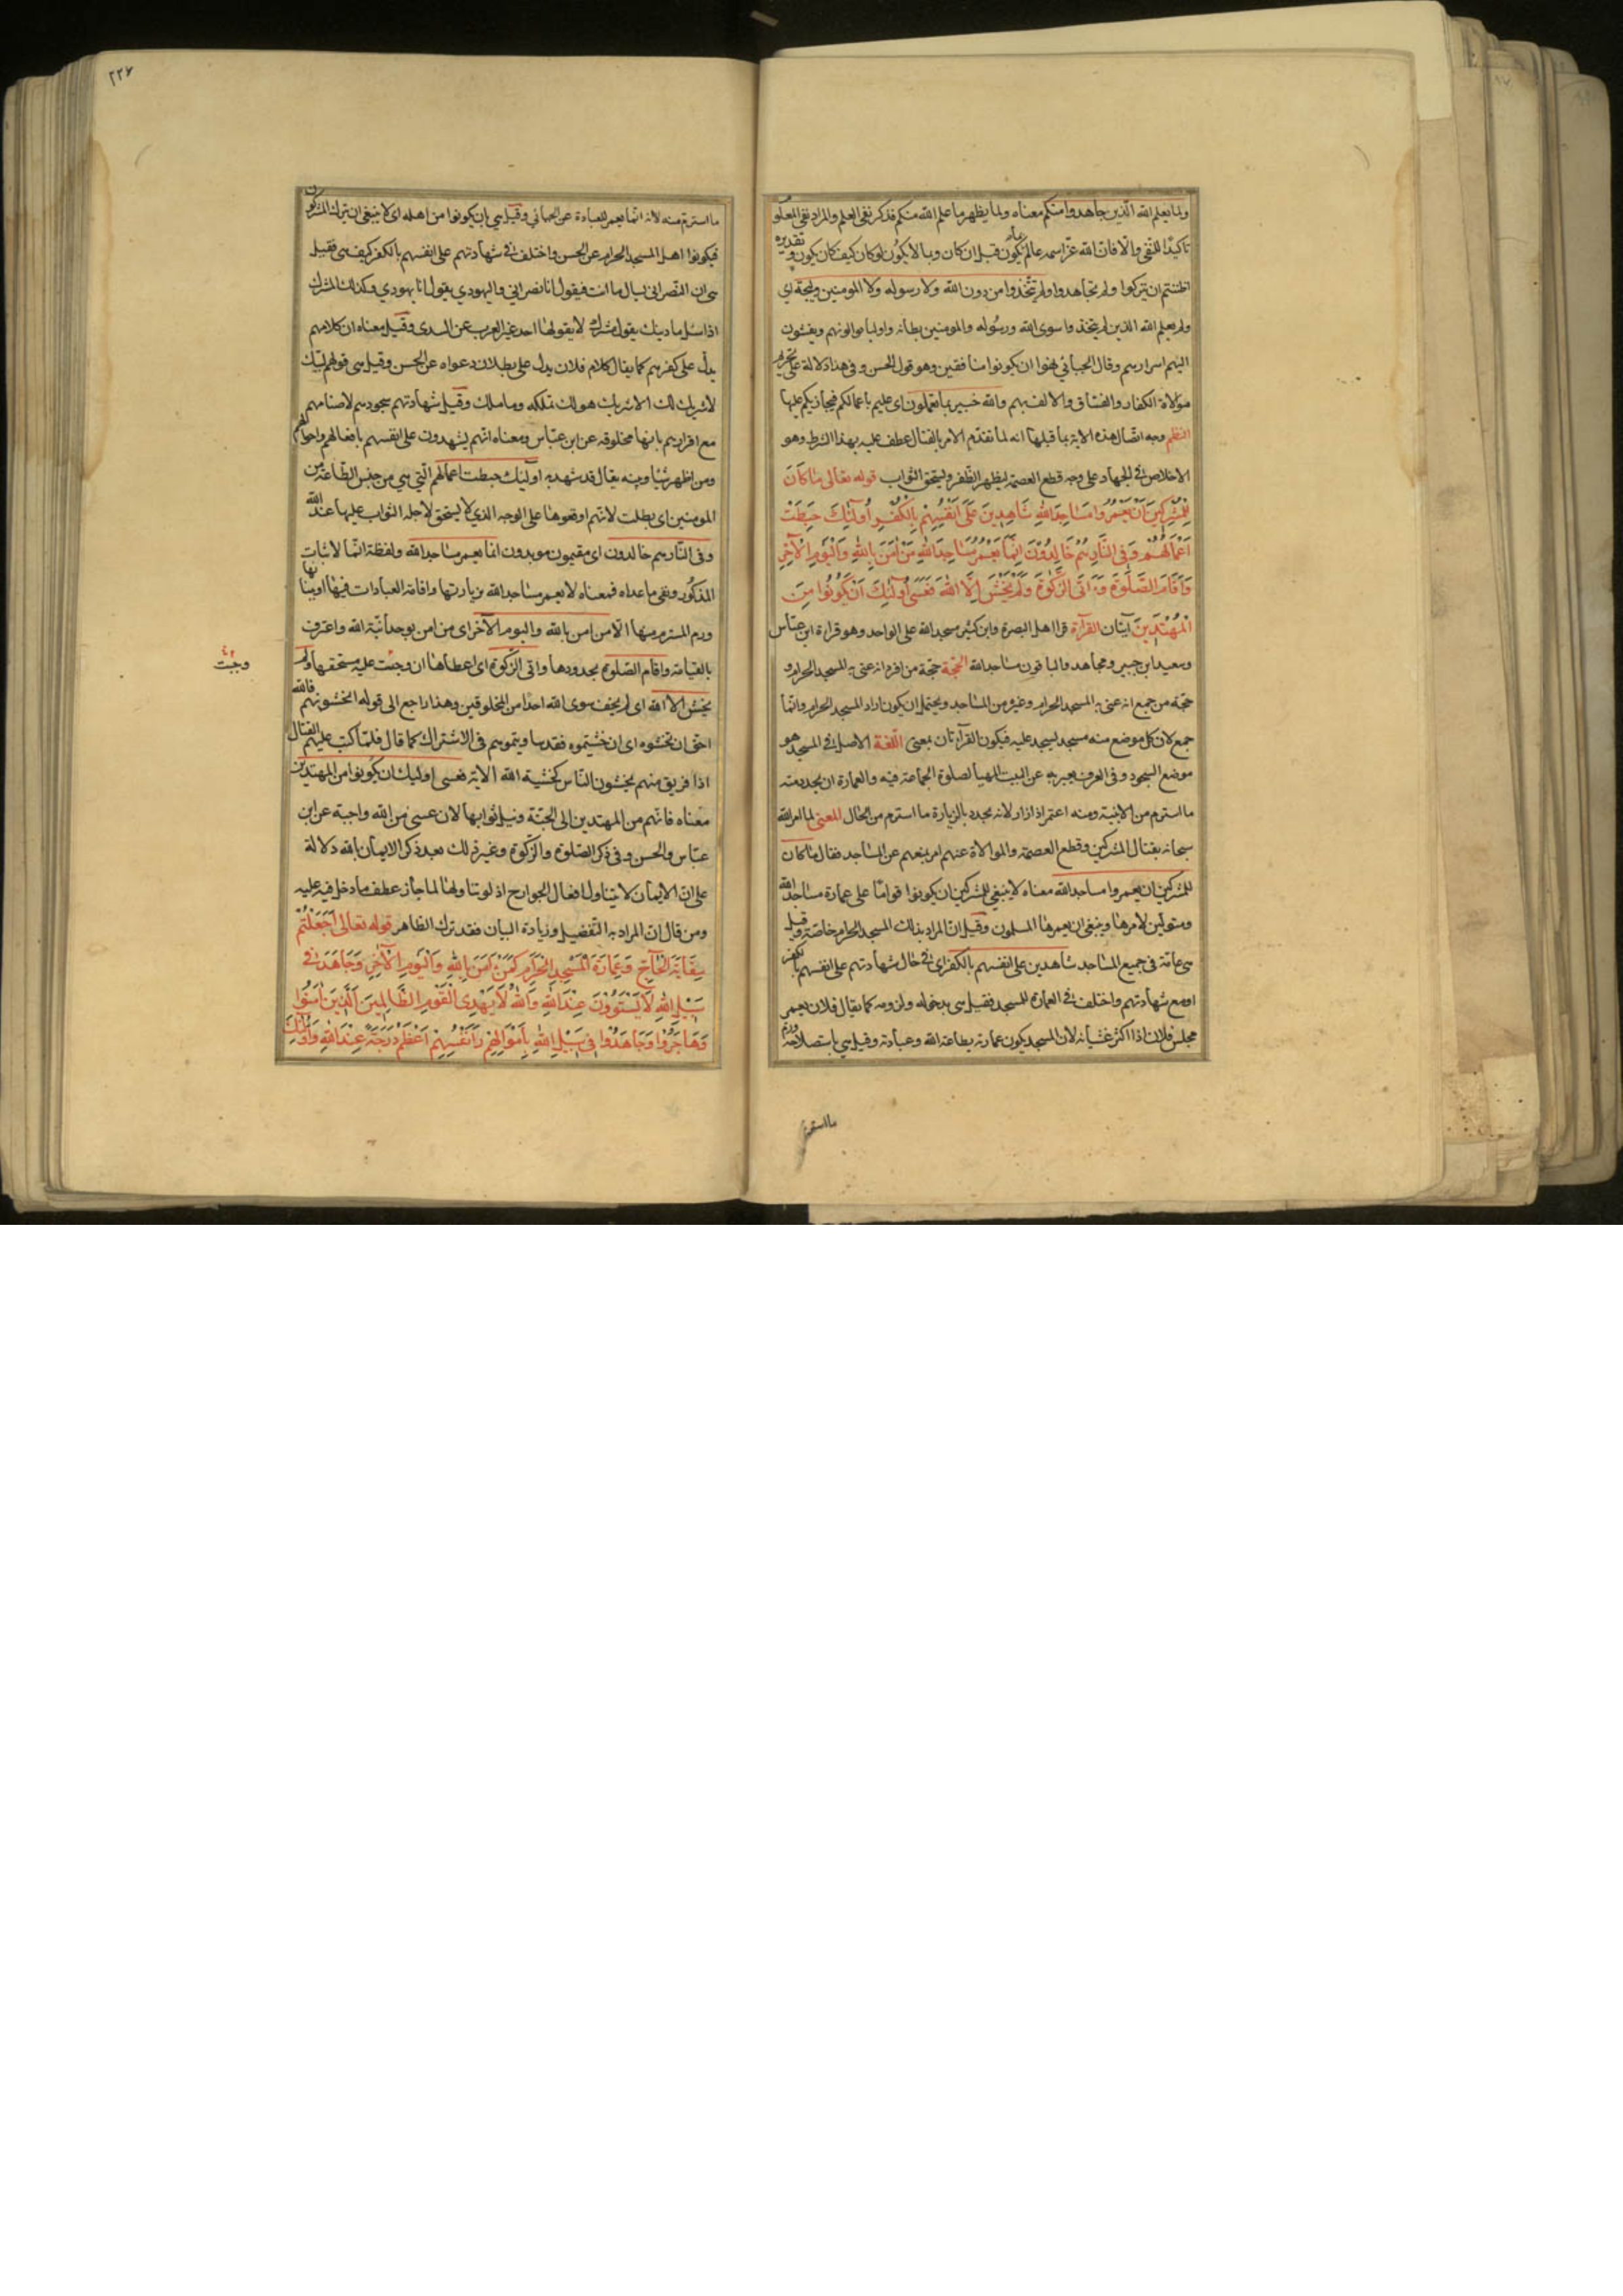 ولما يعلم الله الذين جاهدوا منكم معناه ولما يظهر ما علم الله منكم فذكر نفى العلم والمراد نفى المعلوم
تاكيدا للنفى والا فان الله عز اسمه عالم بما يكون قبل ان كان وبما لا يكون لو كان كيف كان يكون وتقديره
اظننتم ان تتركوا ولم تجاهدوا ولم تتخذوا من دون الله ولا رسوله ولا المومنين وليجة اى
ولم يعلم الله الذين لم يتخذوا سوى الله ورسوله والمومنين بطانة واولياء يوالونهم ويفشون
اليهم اسرارهم وقال الجبائي هو ان يكونوا منافقين وهو قول الحسن وفى هذا دلالة على تحريم
موالاة الكفار والفساق والالف بهم والله خبير بما تعملون اى عليم باعمالكم فيجازيكم عليها
النظم وجه اتصال هذه الاية بما قبلها انه لما تقدم الامر بالقتال عطف عليه بهذا الشرط وهو
الاخلاص فى الجهاد على وجه قطع العصمة ليظهر الظفر ويستحق الثواب قوله تعالى ما كان
للمشركين ان يعمروا مساجد الله شاهدين على انفسهم بالكفر اولئك حبطت
اعمالهم وفى النار هم خالدون انما يعمر مساجد الله من امن بالله واليوم الاخر
واقام الصلوة واتى الزكوة ولم يخش الا الله فعسى اولئك ان يكونوا من
المهتدين ايتان القراة قرا اهل البصرة وابن كثير مسجد الله على الواحد وهو قراة ابن عباس
وسعيد ابن جبير ومجاهد والباقون مساجد الله الحجة حجة من افرد انه عنى به المسجد الحرام و
حجة من جمع انه عنى به المسجد الحرام وغيره من المساجد ويحتمل ان يكون اراد المسجد الحرام وانما
جمع لان كل موضع منه مسجد يسجد عليه فيكون القرآتان بمعنى اللغة الاصل فى المسجد هو
موضع السجود وفى العرف يعبر به عن البيت المهيا لصلوة الجماعة فيه والعمارة ان يجدد منه
ما استرم من الابنية ومنه اعتمر اذا زار لانه يجدد بالزيارة ما استرم من الحال المعنى لما امر الله
سبحانه بقتال المشركين وقطع العصمة والموالاة عنهم امر بمنعهم عن المساجد فقال ما كان
للمشركين ان يعمروا مساجد الله معناه لا ينبغى للمشركين ان يكونوا قواما على عمارة مساجد الله
ومتولين لامرها وينبغى ان يعمرها المسلمون وقيل ان المراد بذلك المسجد الحرام خاصة وقيل
هى عامة فى جميع المساجد شاهدين على انفسهم بالكفر اى فى حال شهادتهم على انفسهم بالكفر
او مع شهادتهم واختلف فى العمارة للمسجد فقيل هى بدخوله ولزومه كما يقال فلان يعمر
مجلس فلان اذا اكثر غشيانه لان المسجد يكون عمارته بطاعة الله وعبادته وقيل هى باستصلاحه ورم
ما استرم
٢٢٧
ما استرم منه لانه انما يعمر للعبادة عن الجبائي وقيل هى بان يكونوا من اهله اى لا ينبغى ان يترك المشركون
فيكونوا اهل المسجد الحرام عن الحسن واختلف فى شهادتهم على انفسهم بالكفر كيف هى فقيل
هى ان النصرانى يسال ما انت فيقول انا نصرانى واليهودي يقول انا يهودي وكذلك المشرك
اذا سئل ما دينك يقول مشرك لا يقولها احد غير العرب عن السدى وقيل معناه ان كلامهم
يدل على كفرهم كما يقال كلام فلان يدل على بطلان دعواه عن الحسن وقيل هى قولهم لبيك
لا شريك لك الا شريك هو لك تملكه وما ملك وقيل شهادتهم سجودهم لاصنامهم
مع اقرارهم بانها مخلوقة عن ابن عباس ومعناه انهم يشهدون على انفسهم بافعالهم واحوالهم
ومن اظهر شيئا وبينه يقال قد شهد به اولئك حبطت اعمالهم التي هي من جنس الطاعة من
المومنين اى بطلت لانهم اوقعوها على الوجه الذي لا يستحق لاجله الثواب عليها عند الله
وفى النار هم خالدون اى مقيمون موبدون انما يعمر مساجد الله ولفظة انما لاثبات
المذكور ونفى ما عداه فمعناه لا يعمر مساجد الله بزيارتها واقامة العبادات فيها او ببنائها
ورم المسترم منها الا من امن بالله واليوم الاخر اى من امن بوحدانية الله واعترف
بالقيامة واقام الصلوة بحدودها واتى الزكوة اى اعطاها ان وجبت عليه مستحقها ولم
وجبت
يخش الا الله اى لم يخف سوى الله احدا من المخلوقين وهذا راجع الى قوله اتخشونهم فالله
احق ان تخشوه اى ان خشيتموه فقد ساويتموهم فى الاشراك كما قال فلما كتب عليهم القتال
اذا فريق منهم يخشون الناس كخشية الله الاية فعسى اولئك ان يكونوا من المهتدين
معناه فانهم من المهتدين الى الجنة ونيل ثوابها لان عسى من الله واجبة عن ابن
عباس والحسن وفى ذكر الصلوة والزكوة وغير ذلك بعد ذكر الايمان بالله دلالة
على ان الايمان لا يتناول افعال الجوارح اذ لو تناولها لما جاز عطف ما دخل فيه عليه
ومن قال ان المراد به التفصيل وزيادة البيان فقد ترك الظاهر قوله تعالى اجعلتم
سقاية الحاج وعمارة المسجد الحرام كمن امن بالله واليوم الاخر وجاهد فى
سبيل الله لا يستوون عند الله والله لا يهدى القوم الظالمين الذين امنوا
وهاجروا وجاهدوا فى سبيل الله باموالهم وانفسهم اعظم درجة عند الله واولئك